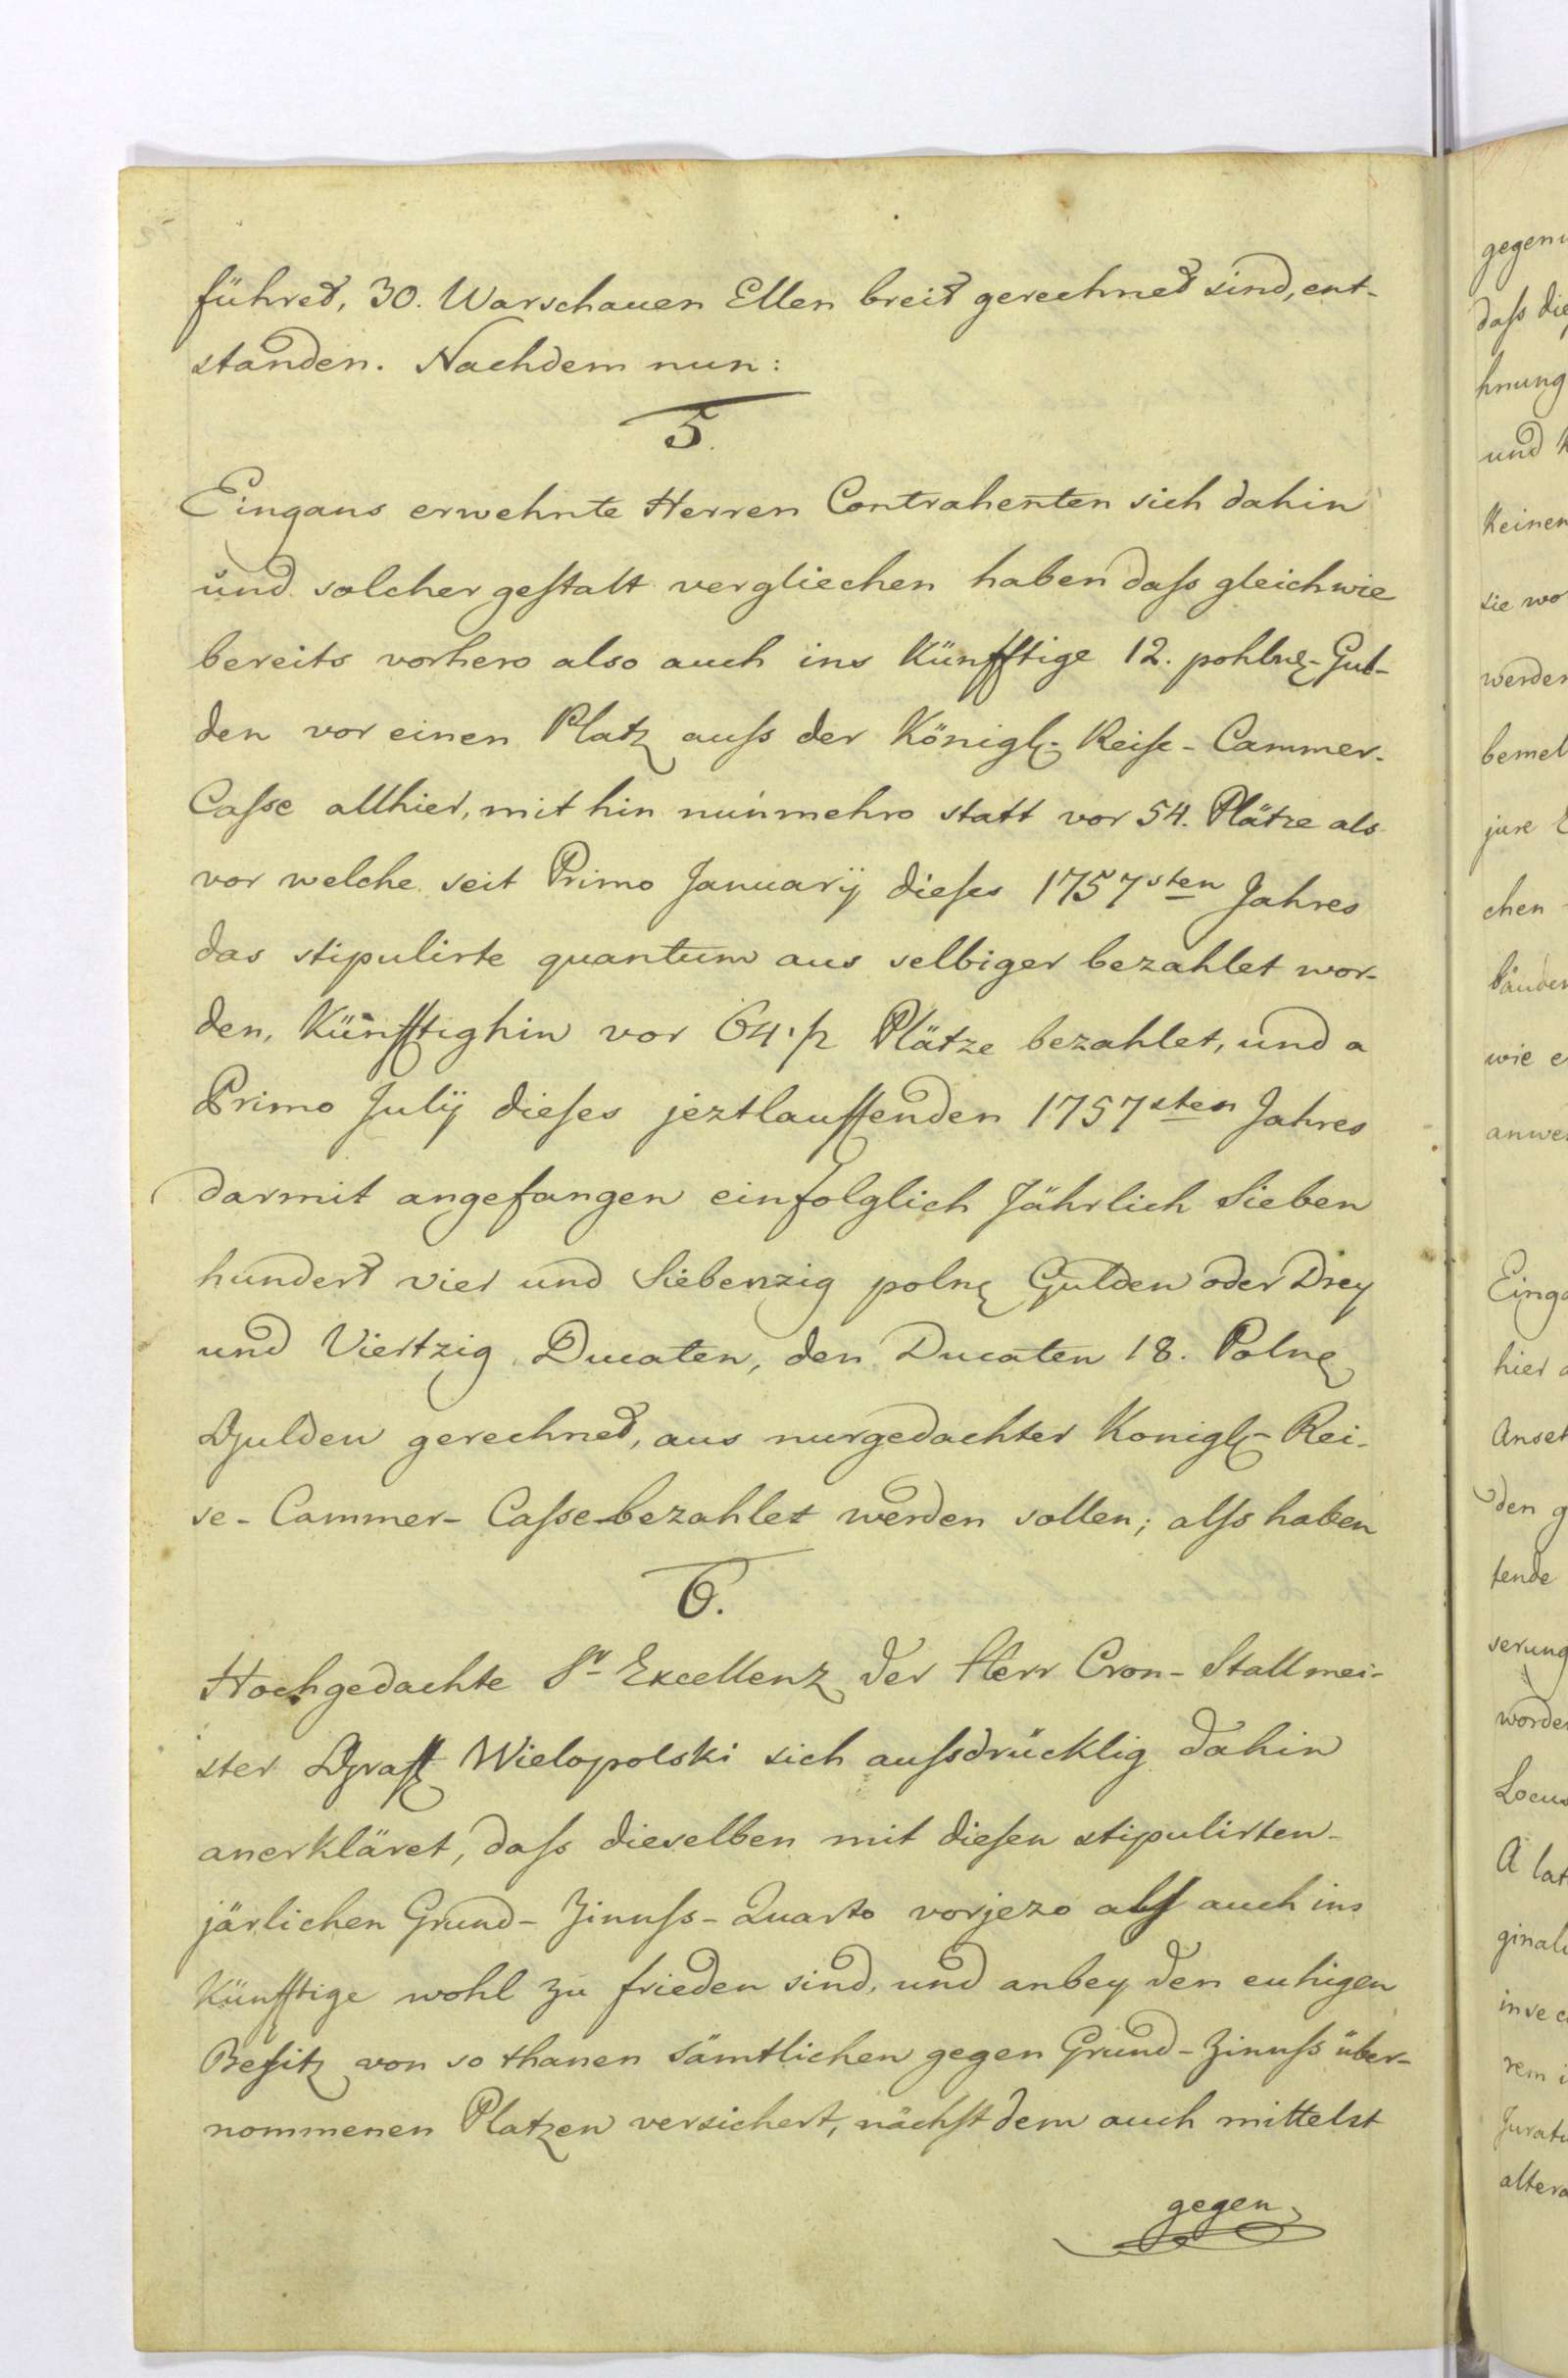 führet, 30. Warschauer Ellen breit gerechnet sind, ent-
standen. Nachdem nun:
5.
Eingans erwehnte Herren Contrahenten sich dahin
und solcher gestalt vergliechen haben daſs gleichwie
bereits vorhero also auch ins Künfftige 12. pohln. Gul-
den vor einen Platz auſs der Königl. Reiſe-Cammer-
Caſse allhier, mit hin nunmehro statt vor 54. Plätze als
vor welche seit Primo Januarij dieſes 1757sten Jahres
das stipulirte quantum aus selbiger bezahlet wor-
den, Künfftighin vor 64 1/2 Plätze bezahlet, und a
Primo Julij dieſes jeztlauffenden 1757sten Jahres
darmit angefangen einfolglich Jährlich Sieben
hundert vier und Siebenzig poln. Gulden oder Drey
und Viertzig Ducaten, den Ducaten 18. Poln.
Gulden gerechnet, aus nurgedachter Konigl. Rei-
se-Cammer-Caſse bezahlet werden sollen; alſs haben
6.
Hochgedachte Sr. Excellenz der Herr Cron-Stallmei-
ster Graff Wielopolski sich auſsdrücklig dahin
anerkläret, daſs dieselben mit dieſen stipulirten
järlichen Grund-Zinnſs-Quarto vorjezo alſs auch ins
Künfftige wohl zu frieden sind, und anbey den euhigen
Beſitz von so thanen sämtlichen gegen Grund-Zinnſs über-
nommenen Platzen versichert, nächſt dem auch mittelst
gegen
gegen
daſs die
hnung
und
Keinen
sie wo
werden
bemel
jure
chen
bäuden
wie e
anwe
Einga
hier
Anset
den g
tende
serung
worde
Locus
A lat
ginali
inve
rem i
Jurat
altera